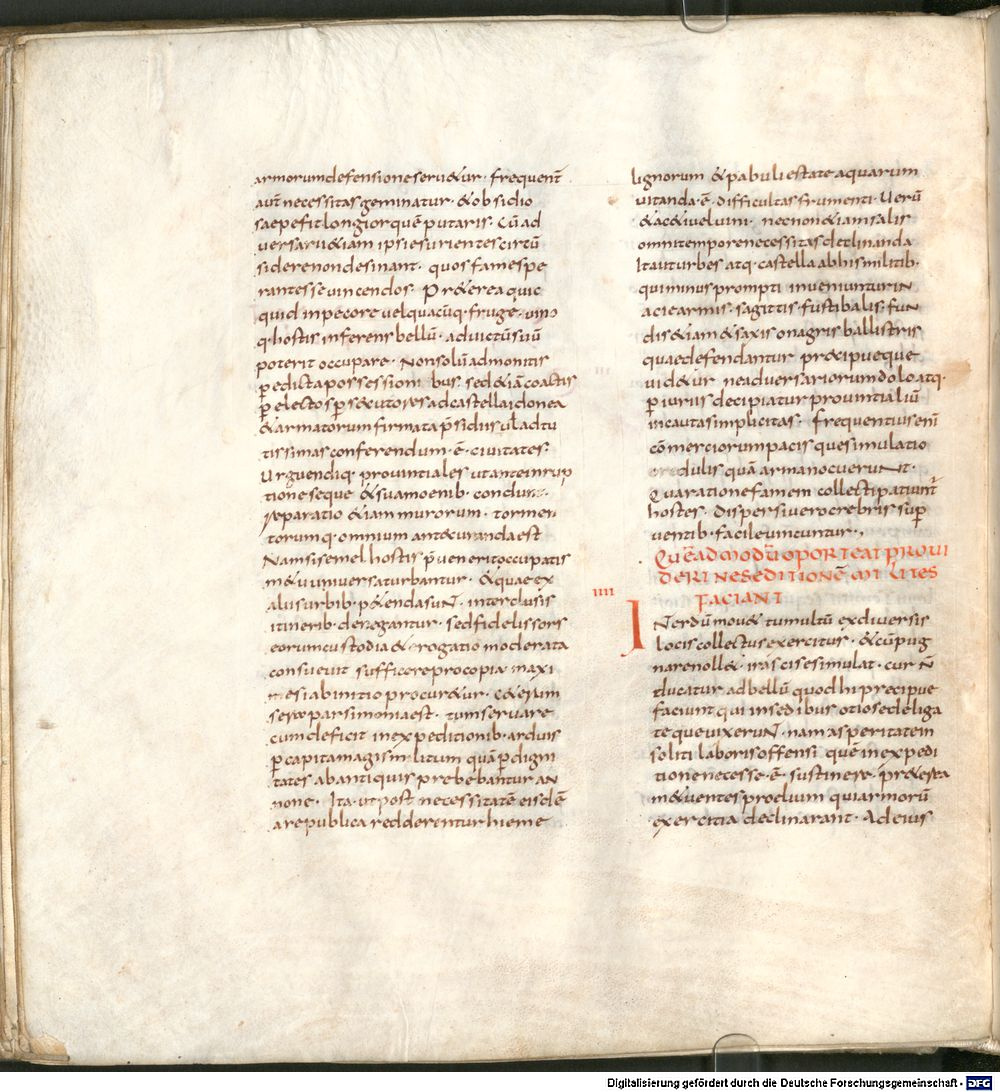 armorum defensione seru&ur · frequent̄
aut̄ necessitas geminatur · & obsidio
saepe fit longior quē putaris · Cū ad
uersarii &iam ipsi esurientes circū
sidere non desinant · quos fame spe
rant esse uincendos · Pr&erea quic
quid in pecore uel quacūq · fruge · uino
q · hostis inferens bellū · ad uictū suū
poterit occupare · Non solū admonitis
p edicta possession bus · sed &iā coactis
p electos p secutores ad castella idonea
& armatorum firmata p̄sidiis ul ad tu
tissimas conferendum · ē · ciuitates ·
Urguendiq · prouintiales ut ante inrup
tionem seque & sua moenib · condun
reparatio &iam murorum · tormen
torumq · omnium ant&uranda est
Nam si semel hostis p̄uenerit occupatis
m&u uniuersa turbantur · & quae ex
aliis urbib · p&enda suNt · interclusis
itinerib · denegantur · sed fidelis sors
eorum custodia & rogatio moderata
consueuit sufficere pro copia maxi
me si ab initio procur&ur · C&erum
sera parsimonia est · tum seruare
cum deficit in expeditionib · arduis
p capita magis militum quā p digni
tates ab antiquis prebebantur an
none · Ita · ut post necessitatē eisdē
a republica redderentur hieme
lignorum & pabuli estate aquarum
uitanda · ē · difficultas frumenti · Uerū
& ac& i uel uini · necnon &iam salis
omni tempore necessitas declinanda
Ita ut urbes atq · castella ab his militib ·
qui minus prompti inueniuntur iN
acie armis · sagittis · fustibalis · fuN
dis &iam & saxis onagris ballistris
quae defendantur precipueque
uid&ur · ne aduersariorum dolo atq ·
p iuriis decipiatur prouintialiū
incauta simplicitas · frequentius enī
cōmerciorum pacisque simulatio
credulis quā arma nocueruNt ·
Qua ratione famem collecti patiunt̄
hostes · dispersi uero crebris sup
uentib · facile uincuntur ·,
Quēadmodū oporteat proui
deri ne seditionē milites
faciant
IIII
INerdū mou& tumultū ex diuersis
locis collectus exercitus · & cū pug
nare noll& · irasci se simulat · cur N̄
ducatur ad bellū quod hi precipue
faciunt qui in sedibus otiose delica
teque uixeruN · nam asperitatem
soliti laboris offensi quē in expedi
tione necesse · ē · sustinere · pr&erea
m&uentes proelium qui armorū
exercitia declinarant · Ad eius